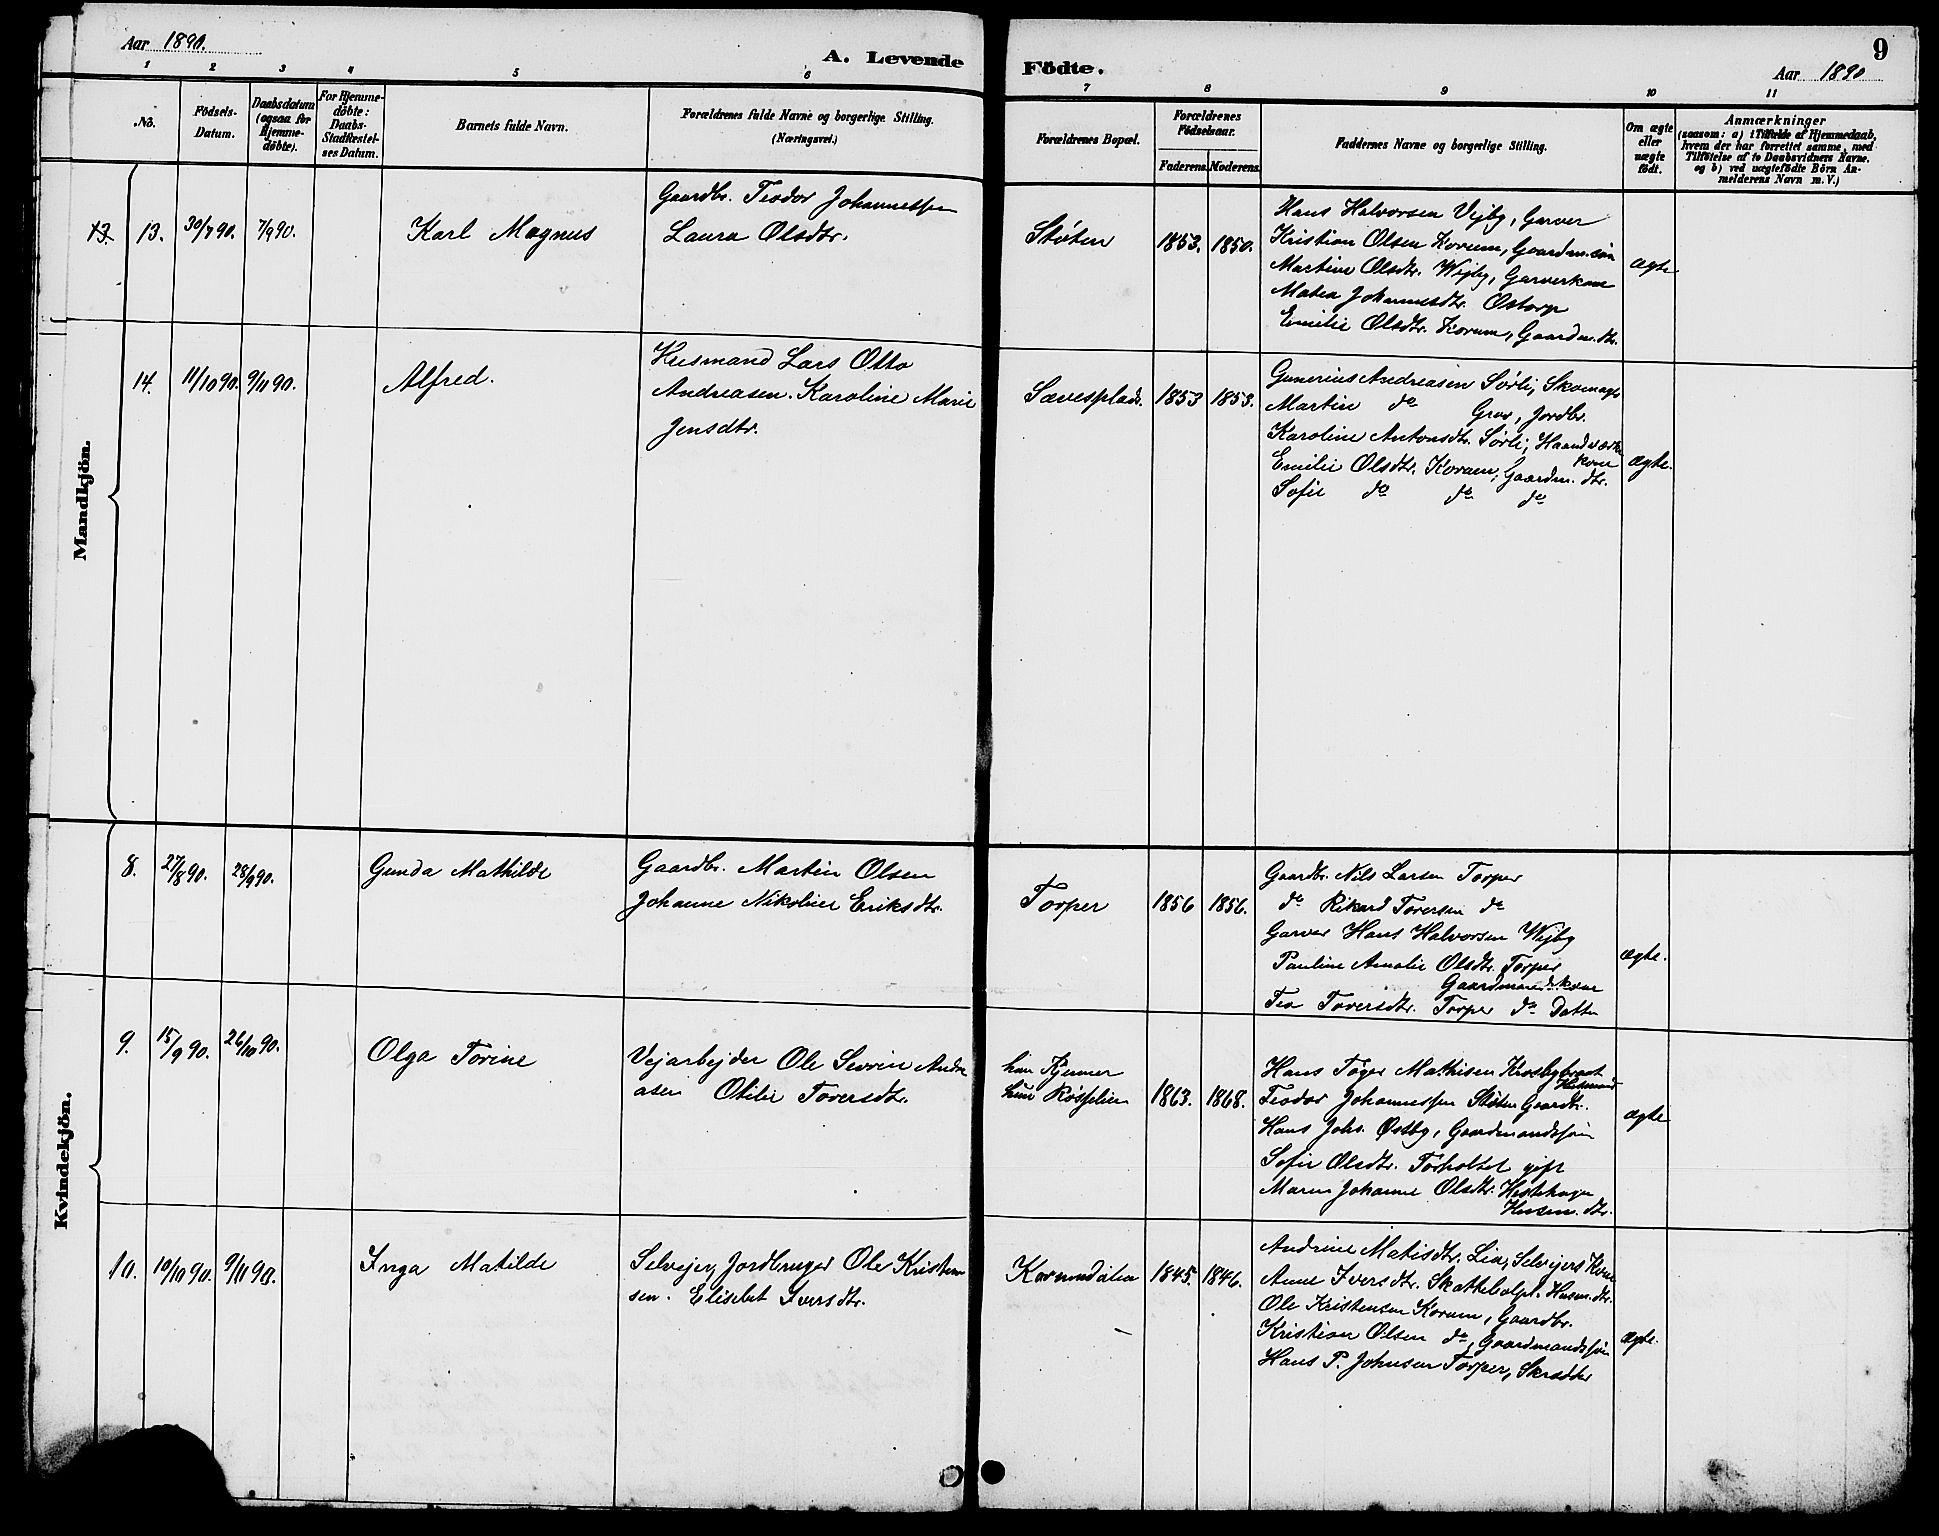 Aar 1890.
A. Levende
Födte.
9
Aar 1890
1 2 3 4 5 6 7 8 9 10 11
No.
Födsels-Datum.
Daabsdatum (ogsaa for Hjemme-døbte).
For Hjemme-døbte: Daabs-Stadfestel-ses Datum.
Barnets fulde Navn.
Forældrenes fulde Navne og borgerlige Stilling. (Næringsvei.)
Forældrenes Bopæl.
Forældrenes Födselsaar.
Faderens. Moderens.
Faddernes Navne og borgerlige Stilling.
Om ægte eller uægte födt.
Anmærkninger
(saasom: a) i Tilfælde af Hjemmedaab,
hvem der har forrettet samme, med
Tilföielse af to Daabsvidners Navne.
og b) ved uægtefödte Börn An-
melderens Navn m. V.)
Mandkjön.
13. 13. 30/7 90. 7/9 90.
Karl Magnus
Gaardbr. Teodor Johannessen
Laura Olsdtr.
Støten 1853. 1850.
Hans Halvorsen Vejby, Garver
Kristian Olsen Korum, Gaardm. søn
Martine Olsdtr. Wejby, Garverkone
Matea Johannesdtr. Ostorp
Emilie Olsdtr. Korum, Gaardm. dtr.
ægte
14. 11/10 90. 9/11 90.
Alfred.
Husmand Lars Otto
Andreasen. Karoline Marie
Jensdtr.
Sævesplads. 1853 1853.
Gunerius Andreasen Sørli, Skomager
Martin do Grav, Jordbr.
Karoline Antonsdtr. Sørli, Haandværk
kone
Emilie Olsdtr. Korum, Gaardm. dtr.
Sofie do do do
ægte.
Kvindekjön.
8. 27/8 90. 28/9 90.
Gunda Mathilde
Gaardbr. Martin Olsen
Johanne Nikoline Eriksdtr.
Torper 1856 1856.
Gaardbr. Nils Larsen Torper
do Rikard Toversen do
Garver Hans Halvorsen Wejby
Pauline Amalie Olsdtr. Torper
Gaardmandskone
Tea Toversdtr. Torper do Datter
ægte.
9. 15/9 90. 26/10 90.
Olga Torine
Vejarbejder Ole Severin Andre
asen Otilie Toversdtr.
han Kjenner
hun 1863. 1868.
Hans Tøger Mathisen Krosbybraat
Husmand
Teodor Johannessen Støten Gaardbr.
Hans Johs. Østby, Gaardmandssøn
Sofie Olsdtr. Torholtet gift
Maren Johanne Olsdtr. Hestehagen
Husm. dtr.
ægte
10. 10/10 90. 9/11 90.
Inga Matilde
Selvejer, Jordbruger Ole Kristen
sen. Elisebet Iversdtr.
Korumdalen 1845. 1846.
Andrine Matisdtr. Lia, Selvejers Kone
Anne Iversdtr. Skattebolpl. Husm. dtr.
Ole Kristensen Korum, Gaardbr.
Kristian Olsen do, Gaardmandssøn
Hans P. Johnsen Torper, Skrædder
ægte.